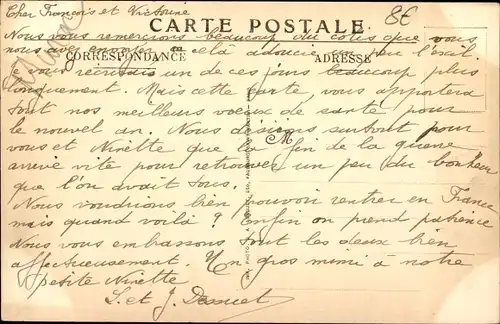 Cher François et Victorine
CARTE POSTALE
8€
Nous vous remercions beaucoup du colis que vous
nous avez envoyer cela adoucie un peu l'exil
CORRESPONDANCE
ADRESSE
Je vous récrirais un de ces jours beaucoup plus
longuement. Mais cette carte, vous apportera
tout nos meilleurs voeux de santé pour
le nouvel an. Nous désirons surtout pour
M
vous et Ninette que la fin de la guerre
arrive vite pour retrouver un peu du bonheur
que l'on avait tous.
Nous voudrions bien pouvoir rentrer en France
mais quand voilà ? Enfin on prend patience
Nous vous embrassons tout les deux bien
affectueusement. Un gros mimi à notre
petite Ninette
S. et J.